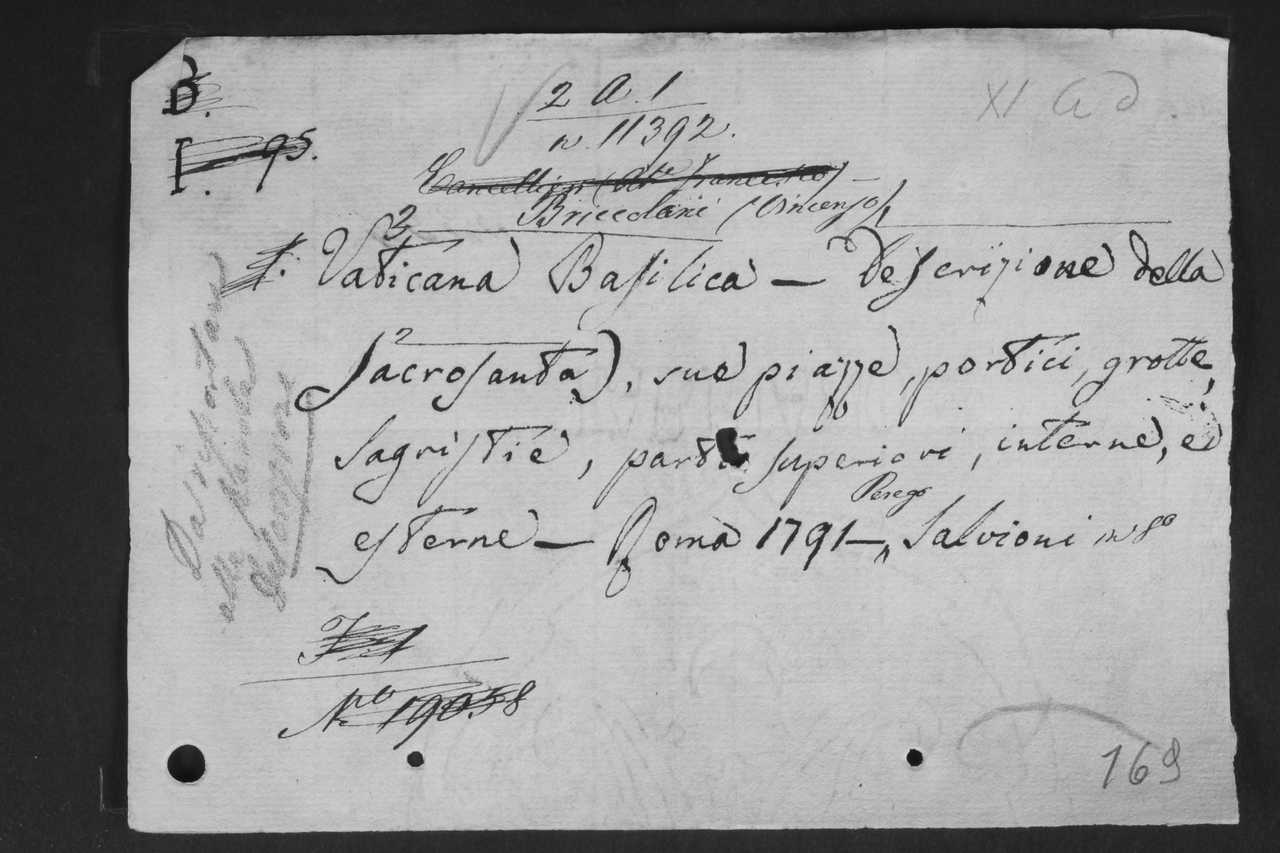 B.
2 A. 1
XI A d
I. 95.
n. 11392.
Cancellieri (Ab.e Francesco)
Briccolani (Vincenzo)
Vaticana Basilica — Descrizione della
Sacrosanta), sue piazze, portici, grotte,
sagristie, parti superiori, interne, ed
Perego
esterne — Roma 1791 — Salvioni in 8o
Da riportare
alle parole
Descrizione
N.o 19058
169